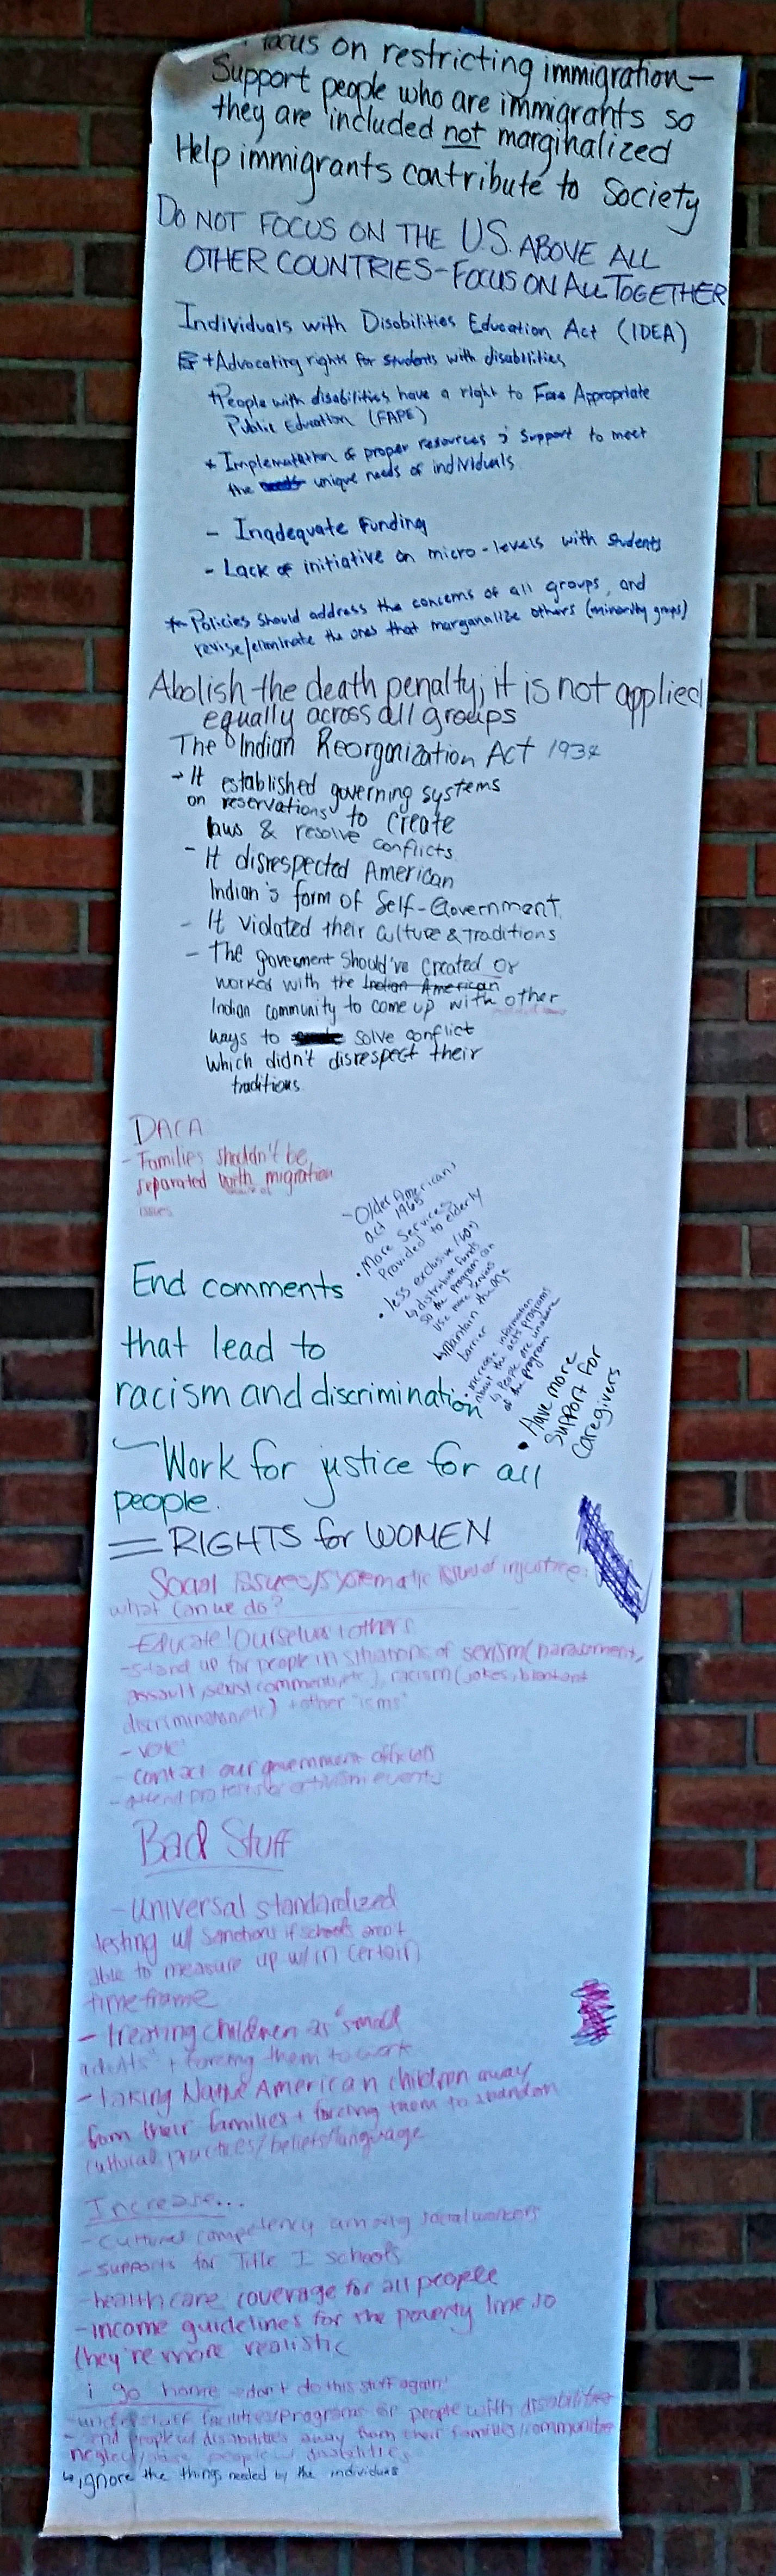 focus on restricting immigration—
Support people who are immigrants so
they are included not marginalized
Help immigrants contribute to Society
DO NOT FOCUS ON THE U.S. ABOVE ALL
OTHER COUNTRIES – FOCUS ON ALL TOGETHER
Individuals with Disabilities Education Act (IDEA)
+ Advocating rights for students with disabilities
+ People with disabilities have a right to Free Appropriate
Public Education (FAPE)
+ Implementation of proper resources & support to meet
the unique needs of individuals
- Inadequate funding
- Lack of initiative on micro-levels with students
* Policies should address the concerns of all groups, and
revise/eliminate the ones that marganalize others (minority groups)
Abolish the death penalty; it is not applied
equally across all groups
The Indian Reorganization Act 1934
→ It established governing systems
on reservations to create
laws & resolve conflicts
- It disrespected American
Indian's form of Self-Government
- It violated their culture & traditions
- The goverment should've created or
worked with the Indian American
Indian community to come up with other
ways to solve conflict
which didn't disrespect their
traditions
DACA
- Families shouldn't be
separated with migration
issues
- Older Americans
act 1965
• More Services
Provided to elderly
• less exclusive (60+)
↳ distribute funds
so the program can
use more services
↳ Maintain the age
barrier
• increase information
about the acts programs
↳ People are unaware
of the program
• Have more
support for
caregivers
End comments
that lead to
racism and discrimination
Work for justice for all
people.
= RIGHTS for WOMEN
Social issues/systematic issues of injustice:
what can we do?
- Educate! Ourselves + others
- Stand up for people in situations of sexism (harassment,
assault, sexist comments, etc.), racism (jokes, blantant
discrimination, etc) + other "isms"
- vote
- contact our government officials
- attend protests or activism events
Bad Stuff
- Universal standardized
testing w/ sanctions if schools aren't
able to measure up w/in certain
timeframe
- treating children as "small
adults" + forcing them to work
- taking Native American children away
from their families + forcing them to abandon
cultural practices/beliefs/language
Increase...
- Cultural competency among social workers
- supports for Title I schools
- healthcare coverage for all people
- income guidelines for the poverty line so
they're more realistic
i go home - don't do this stuff again!
- understaff facilities/programs for people with disabilities
- send people w/ disabilities away from their families/communities
neglect/abuse people w/ disabilities
↳ ignore the things needed by the individuals